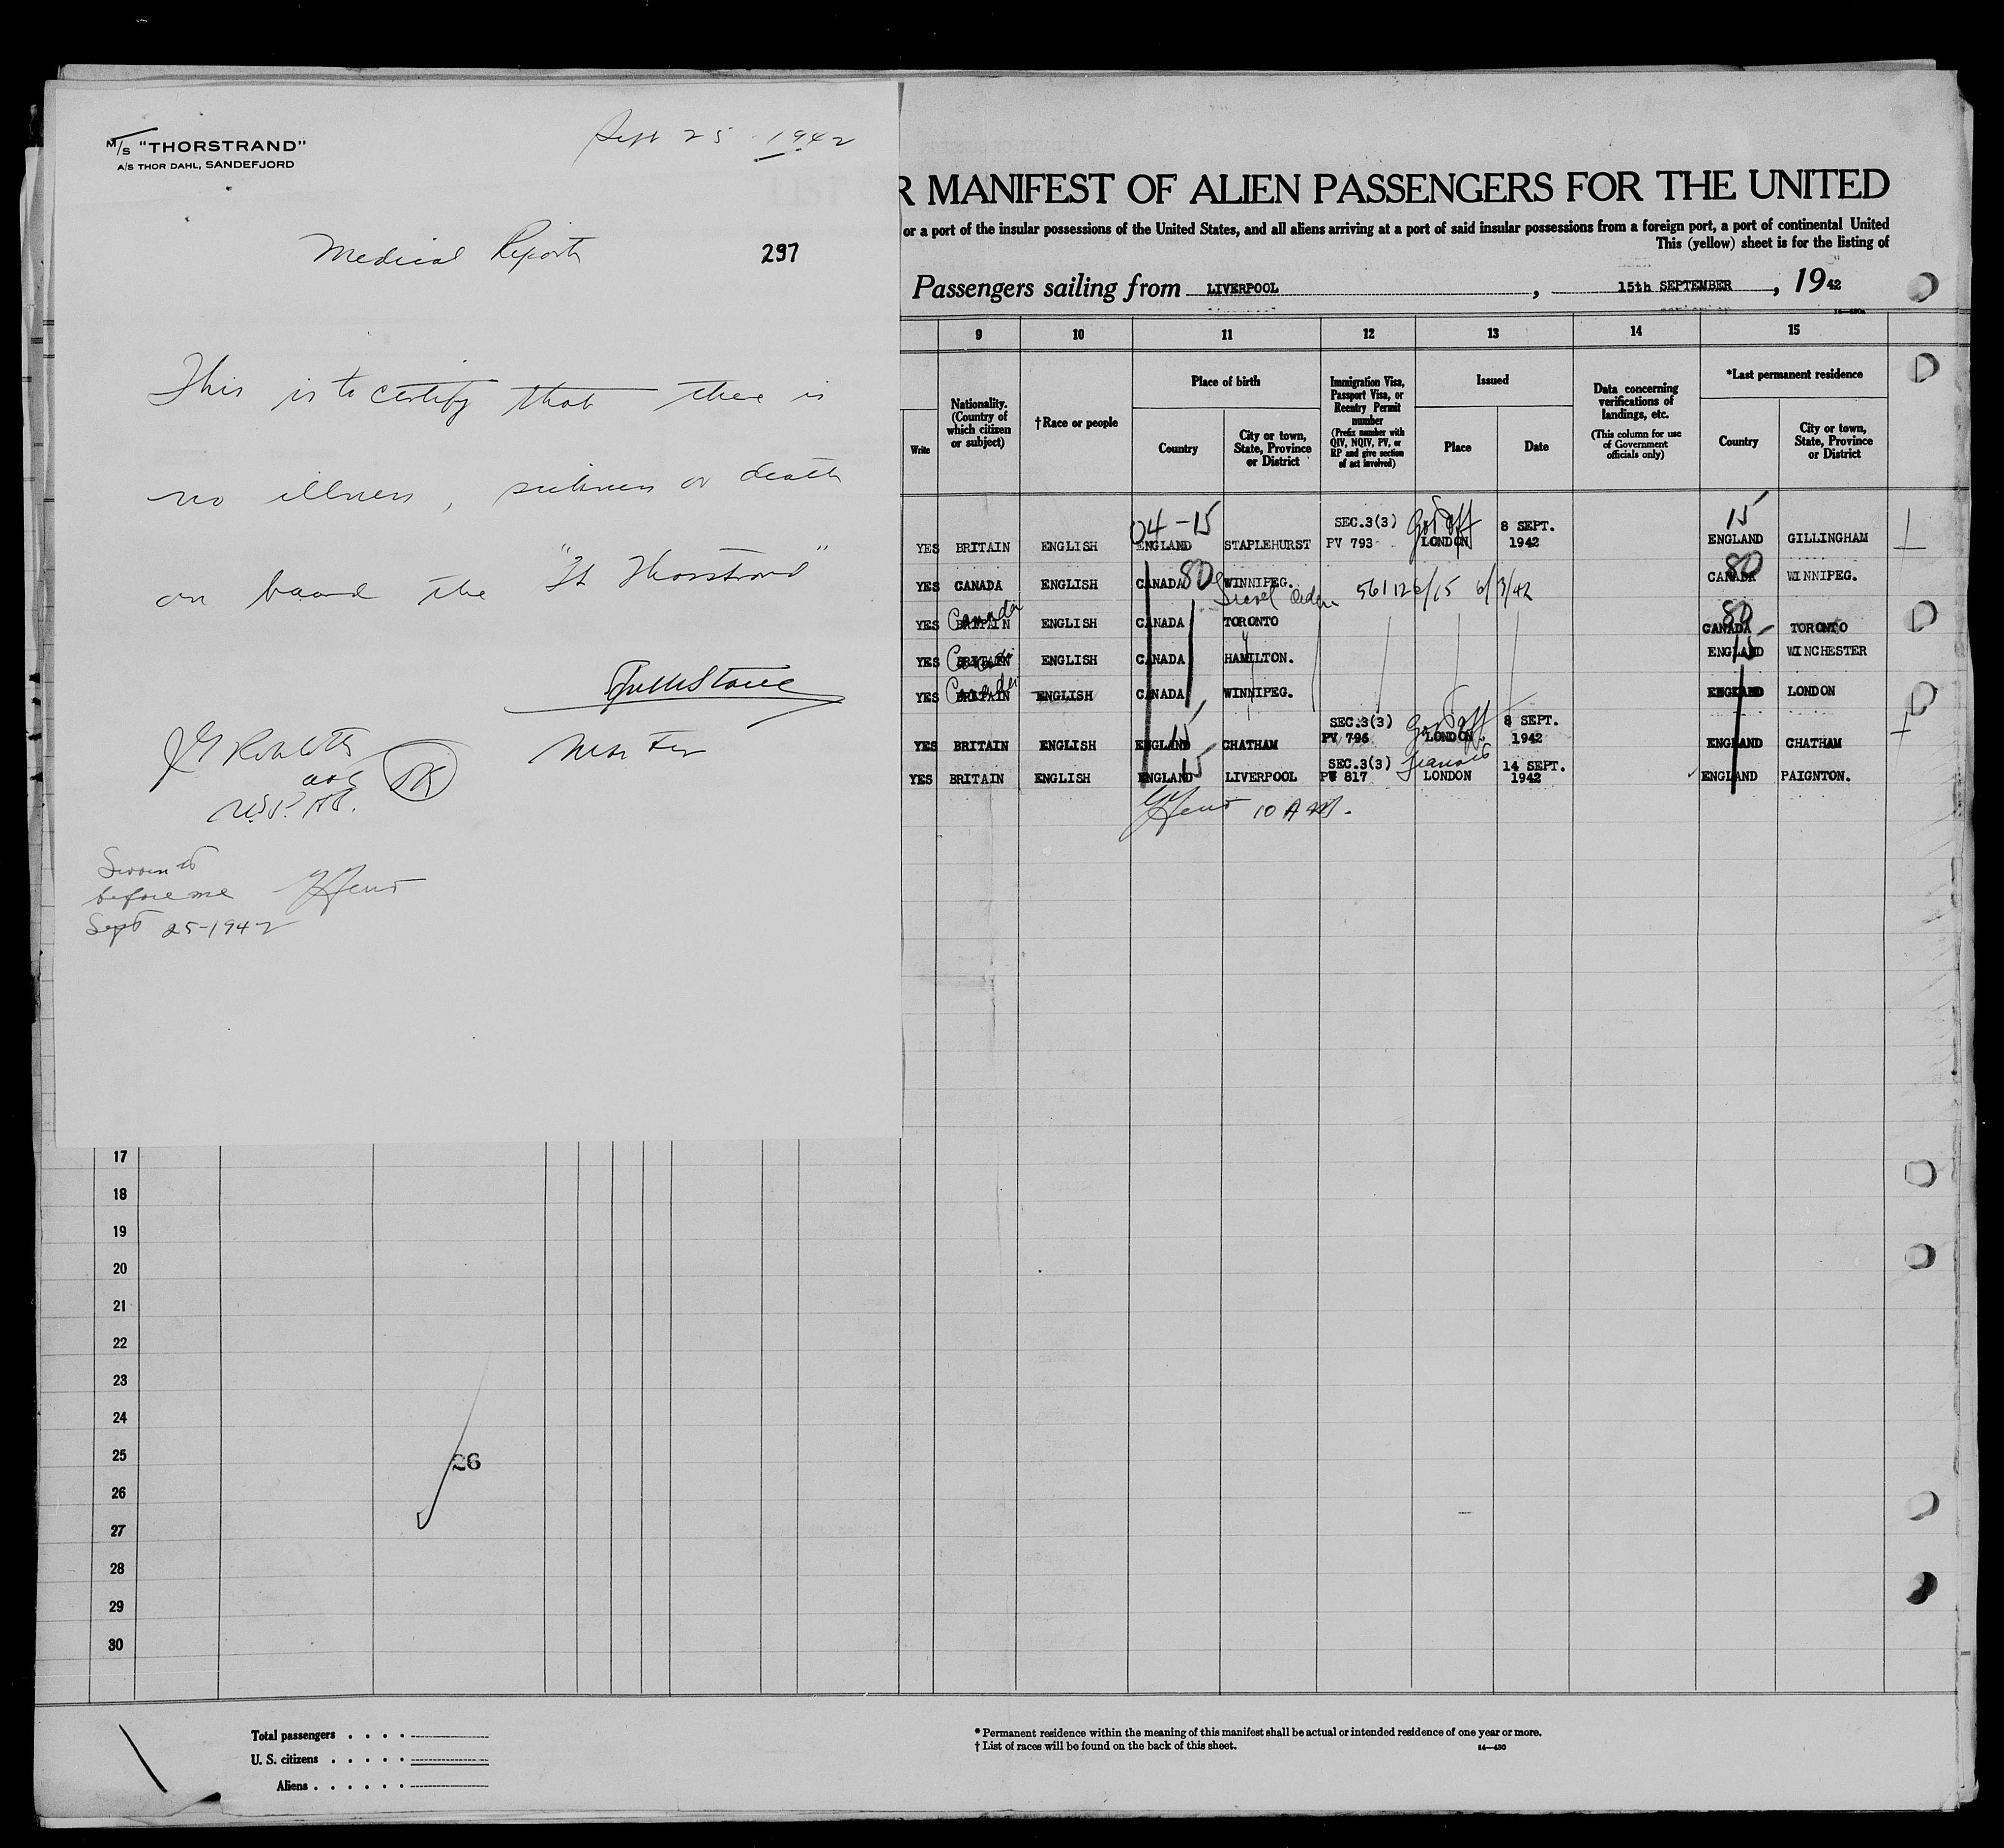 M/S "THORSTRAND"
A/S THOR DAHL, SANDEFJORD
Sept 25 1942
Medical Report
297
This is to certify that there is
no illness, sickness or death
on board the "St Thorstrand"
Master
OK
Sworn to
before me
Sept 25-1942
R MANIFEST OF ALIEN PASSENGERS FOR THE UNITED
or a port of the insular possessions of the United States, and all aliens arriving at a port of said insular possessions from a foreign port, a port of continental United
This (yellow) sheet is for the listing of
Passengers sailing from LIVERPOOL, 15th SEPTEMBER, 1942
9 10 11 12 13 14 15
Write
Nationality. (Country of which citizen or subject)
†Race or people
Place of birth
Country
City or town, State, Province or District
Immigration Visa, Passport Visa, or Reentry Permit number
(Prefix number with QIV, NQIV, PV, or RP and give section of act involved)
Issued
Place
Date
Data concerning verifications of landings, etc.
(This column for use of Government officials only)
*Last permanent residence
Country
City or town, State, Province or District
04-15 SEC.3(3) 8 SEPT. 15
YES BRITAIN ENGLISH ENGLAND STAPLEHURST PV 793 LONDON 1942 ENGLAND GILLINGHAM
YES CANADA ENGLISH CANADA 80 WINNIPEG. 6/3/42 CANADA 80 WINNIPEG.
YES BRITAIN Canada ENGLISH CANADA TORONTO CANADA 80 TORONTO
YES BRITAIN ENGLISH CANADA HAMILTON. ENGLAND 15 WINCHESTER
YES BRITAIN Canada ENGLISH CANADA WINNIPEG. ENGLAND LONDON
SEC.3(3) 8 SEPT.
YES BRITAIN ENGLISH ENGLAND 15 CHATHAM PV 796 LONDON. 1942 ENGLAND CHATHAM
SEC.3(3) 14 SEPT.
YES BRITAIN ENGLISH ENGLAND 15 LIVERPOOL PV 817 LONDON 1942 ENGLAND PAIGNTON.
10 AM.
17
18
19
20
21
22
23
24
25
26
26
27
28
29
30
Total passengers
U. S. citizens
Aliens
* Permanent residence within the meaning of this manifest shall be actual or intended residence of one year or more.
† List of races will be found on the back of this sheet.
14—430